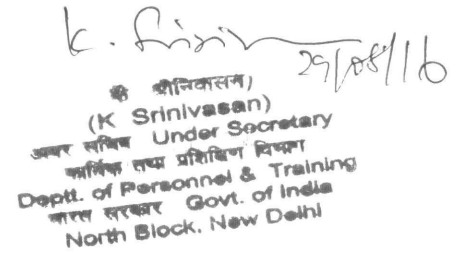 K. Srini
29/08/16
के श्रीनिवासन)
(K Srinivasan)
अवर सचिव Under Secretary
कार्मिक तथा प्रशिक्षण विभाग
Deptt. of Personnel & Training
भारत सरकार Govt. of India
North Block, New Delhi